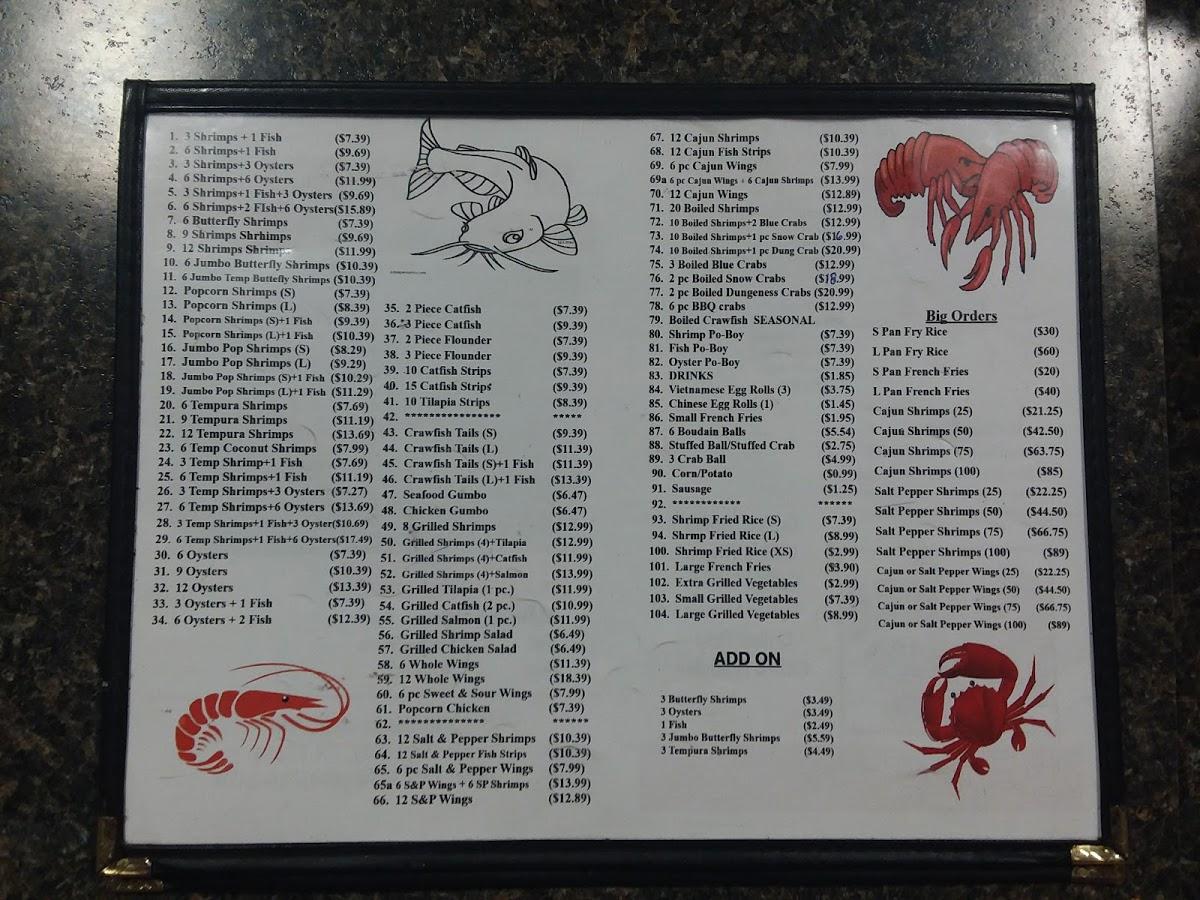 1. 3 Shrimps + 1 Fish ($7.39)
2. 6 Shrimps+1 Fish ($9.69)
3. 3 Shrimps+3 Oysters ($7.39)
4. 6 Shrimps+6 Oysters ($11.99)
5. 3 Shrimps+1 Fish+3 Oysters ($9.69)
6. 6 Shrimps+2 FIsh+6 Oysters($15.89)
7. 6 Butterfly Shrimps ($7.39)
8. 9 Shrimps Shrhimps ($9.69)
9. 12 Shrimps Shrimps ($11.99)
10. 6 Jumbo Butterfly Shrimps ($10.39)
11. 6 Jumbo Temp Buttefly Shrimps ($10.39)
12. Popcorn Shrimps (S) ($7.39)
13. Popcorn Shrimps (L) ($8.39)
14. Popcorn Shrimps (S)+1 Fish ($9.39)
15. Popcorn Shrimps (L)+1 Fish ($10.39)
16. Jumbo Pop Shrimps (S) ($8.29)
17. Jumbo Pop Shrimps (L) ($9.29)
18. Jumbo Pop Shrimps (S)+1 Fish ($10.29)
19. Jumbo Pop Shrimps (L)+1 Fish ($11.29)
20. 6 Tempura Shrimps ($7.69)
21. 9 Tempura Shrimps ($11.19)
22. 12 Tempura Shrimps ($13.69)
23. 6 Temp Coconut Shrimps ($7.99)
24. 3 Temp Shrimp+1 Fish ($7.69)
25. 6 Temp Shrimps+1 Fish ($11.19)
26. 3 Temp Shrimps+3 Oysters ($7.27)
27. 6 Temp Shrimps+6 Oysters ($13.69)
28. 3 Temp Shrimps+1 Fish+3 Oyster($10.69)
29. 6 Temp Shrimps+1 Fish+6 Oysters($17.49)
30. 6 Oysters ($7.39)
31. 9 Oysters ($10.39)
32. 12 Oysters ($13.39)
33. 3 Oysters + 1 Fish ($7.39)
34. 6 Oysters + 2 Fish ($12.39)
35. 2 Piece Catfish ($7.39)
36. 3 Piece Catfish ($9.39)
37. 2 Piece Flounder ($7.39)
38. 3 Piece Flounder ($9.39)
39. 10 Catfish Strips ($7.39)
40. 15 Catfish Strips ($9.39)
41. 10 Tilapia Strips ($8.39)
42. **************** *****
43. Crawfish Tails (S) ($9.39)
44. Crawfish Tails (L) ($11.39)
45. Crawfish Tails (S)+1 Fish ($11.39)
46. Crawfish Tails (L)+1 Fish ($13.39)
47. Seafood Gumbo ($6.47)
48. Chicken Gumbo ($6.47)
49. 8 Grilled Shrimps ($12.99)
50. Grilled Shrimps (4)+Tilapia ($12.99)
51. Grilled Shrimps (4)+Catfish ($11.99)
52. Grilled Shrimps (4)+Salmon ($13.99)
53. Grilled Tilapia (1 pc.) ($11.99)
54. Grilled Catfish (2 pc.) ($10.99)
55. Grilled Salmon (1 pc.) ($11.99)
56. Grilled Shrimp Salad ($6.49)
57. Grilled Chicken Salad ($6.49)
58. 6 Whole Wings ($11.39)
59. 12 Whole Wings ($18.39)
60. 6 pc Sweet & Sour Wings ($7.99)
61. Popcorn Chicken ($7.39)
62. ************** ******
63. 12 Salt & Pepper Shrimps ($10.39)
64. 12 Salt & Pepper Fish Strips ($10.39)
65. 6 pc Salt & Pepper Wings ($7.99)
65a 6 S&P Wings + 6 SP Shrimps ($13.99)
66. 12 S&P Wings ($12.89)
67. 12 Cajun Shrimps ($10.39)
68. 12 Cajun Fish Strips ($10.39)
69. 6 pc Cajun Wings ($7.99)
69a 6 pc Cajun Wings + 6 Cajun Shrimps ($13.99)
70. 12 Cajun Wings ($12.89)
71. 20 Boiled Shrimps ($12.99)
72. 10 Boiled Shrimps+2 Blue Crabs ($12.99)
73. 10 Boiled Shrimps+1 pc Snow Crab ($16.99)
74. 10 Boiled Shrimps+1 pc Dung Crab ($20.99)
75. 3 Boiled Blue Crabs ($12.99)
76. 2 pc Boiled Snow Crabs ($18.99)
77. 2 pc Boiled Dungeness Crabs ($20.99)
78. 6 pc BBQ crabs ($12.99)
79. Boiled Crawfish SEASONAL
80. Shrimp Po-Boy ($7.39)
81. Fish Po-Boy ($7.39)
82. Oyster Po-Boy ($7.39)
83. DRINKS ($1.85)
84. Vietnamese Egg Rolls (3) ($3.75)
85. Chinese Egg Rolls (1) ($1.45)
86. Small French Fries ($1.95)
87. 6 Boudain Balls ($5.54)
88. Stuffed Ball/Stuffed Crab ($2.75)
89. 3 Crab Ball ($4.99)
90. Corn/Potato ($0.99)
91. Sausage ($1.25)
92. ************ ******
93. Shrimp Fried Rice (S) ($7.39)
94. Shrmp Fried Rice (L) ($8.99)
100. Shrimp Fried Rice (XS) ($2.99)
101. Large French Fries ($3.90)
102. Extra Grilled Vegetables ($2.99)
103. Small Grilled Vegetables ($7.39)
104. Large Grilled Vegetables ($8.99)
ADD ON
3 Butterfly Shrimps ($3.49)
3 Oysters ($3.49)
1 Fish ($2.49)
3 Jumbo Butterfly Shrimps ($5.59)
3 Tempura Shrimps ($4.49)
Big Orders
S Pan Fry Rice ($30)
L Pan Fry Rice ($60)
S Pan French Fries ($20)
L Pan French Fries ($40)
Cajun Shrimps (25) ($21.25)
Cajun Shrimps (50) ($42.50)
Cajun Shrimps (75) ($63.75)
Cajun Shrimps (100) ($85)
Salt Pepper Shrimps (25) ($22.25)
Salt Pepper Shrimps (50) ($44.50)
Salt Pepper Shrimps (75) ($66.75)
Salt Pepper Shrimps (100) ($89)
Cajun or Salt Pepper Wings (25) ($22.25)
Cajun or Salt Pepper Wings (50) ($44.50)
Cajun or Salt Pepper Wings (75) ($66.75)
Cajun or Salt Pepper Wings (100) ($89)